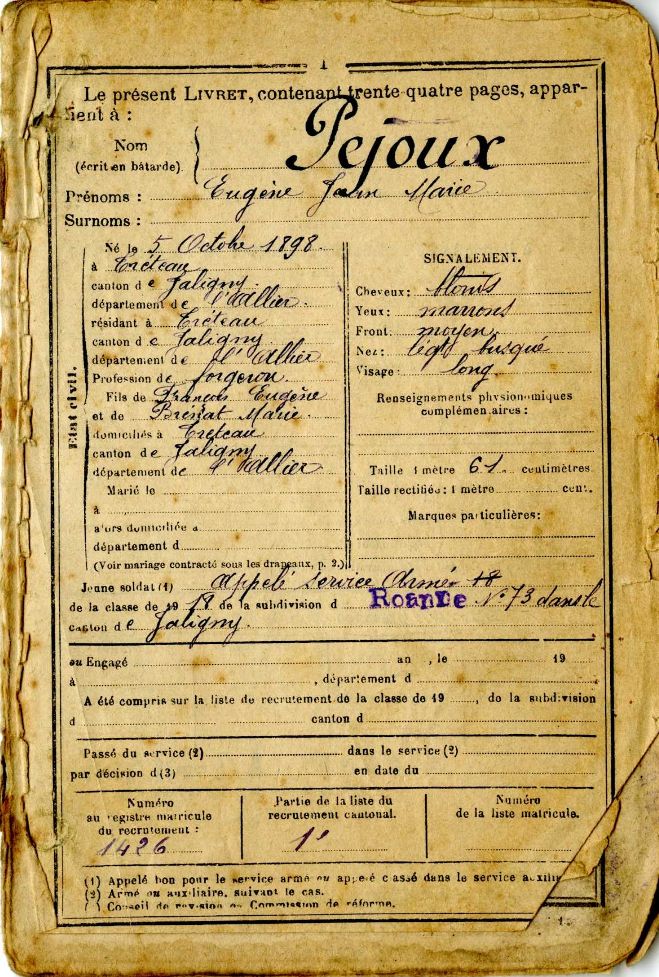 1
Le présent LIVRET, contenant trente-quatre pages, appar-
tient à :
Nom
(écrit en bâtarde).
Pejoux
Prénoms : Eugène Jean Marie
Surnoms :
Etat civil.
Né le 5 Octobre 1898
à Tréteau
canton de Jaligny
département de l'Allier
résidant à Tréteau
canton de Jaligny
département de l'Allier
Profession de forgeron
Fils de François Eugène
et de Bressat Marie
domiciliés à Treteau
canton de Jaligny
département de l'Allier
Marié le
à
alors domiciliée à
département d
(Voir mariage contracté sous les drapeaux, p. 2.)
SIGNALEMENT.
Cheveux : blonds
Yeux : marrons
Front : moyen
Nez : légt busqué
Visage : long
Renseignements physionomiques
complémentaires :
Taille 1 mètre 61 centimètres
Taille rectifiée : 1 mètre cent.
Marques particulières :
Jeune soldat (1) appelé service Armé
de la classe de 1918 de la subdivision d Roanne No 73 dans le
canton de Jaligny
ou Engagé an , le 19
à , département d
A été compris sur la liste de recrutement de la classe de 19 , de la subdivision
d canton d
Passé du service (2) dans le service (2)
par décision d (3) en date du
Numéro
au registre matricule
du recrutement :
1426
Partie de la liste du
recrutement cantonal.
1e
Numéro
de la liste matricule.
(1) Appelé bon pour le service armé ou appelé classé dans le service auxili
(2) Armé ou auxiliaire, suivant le cas.
( ) Conseil de révision ou Commission de réforme.